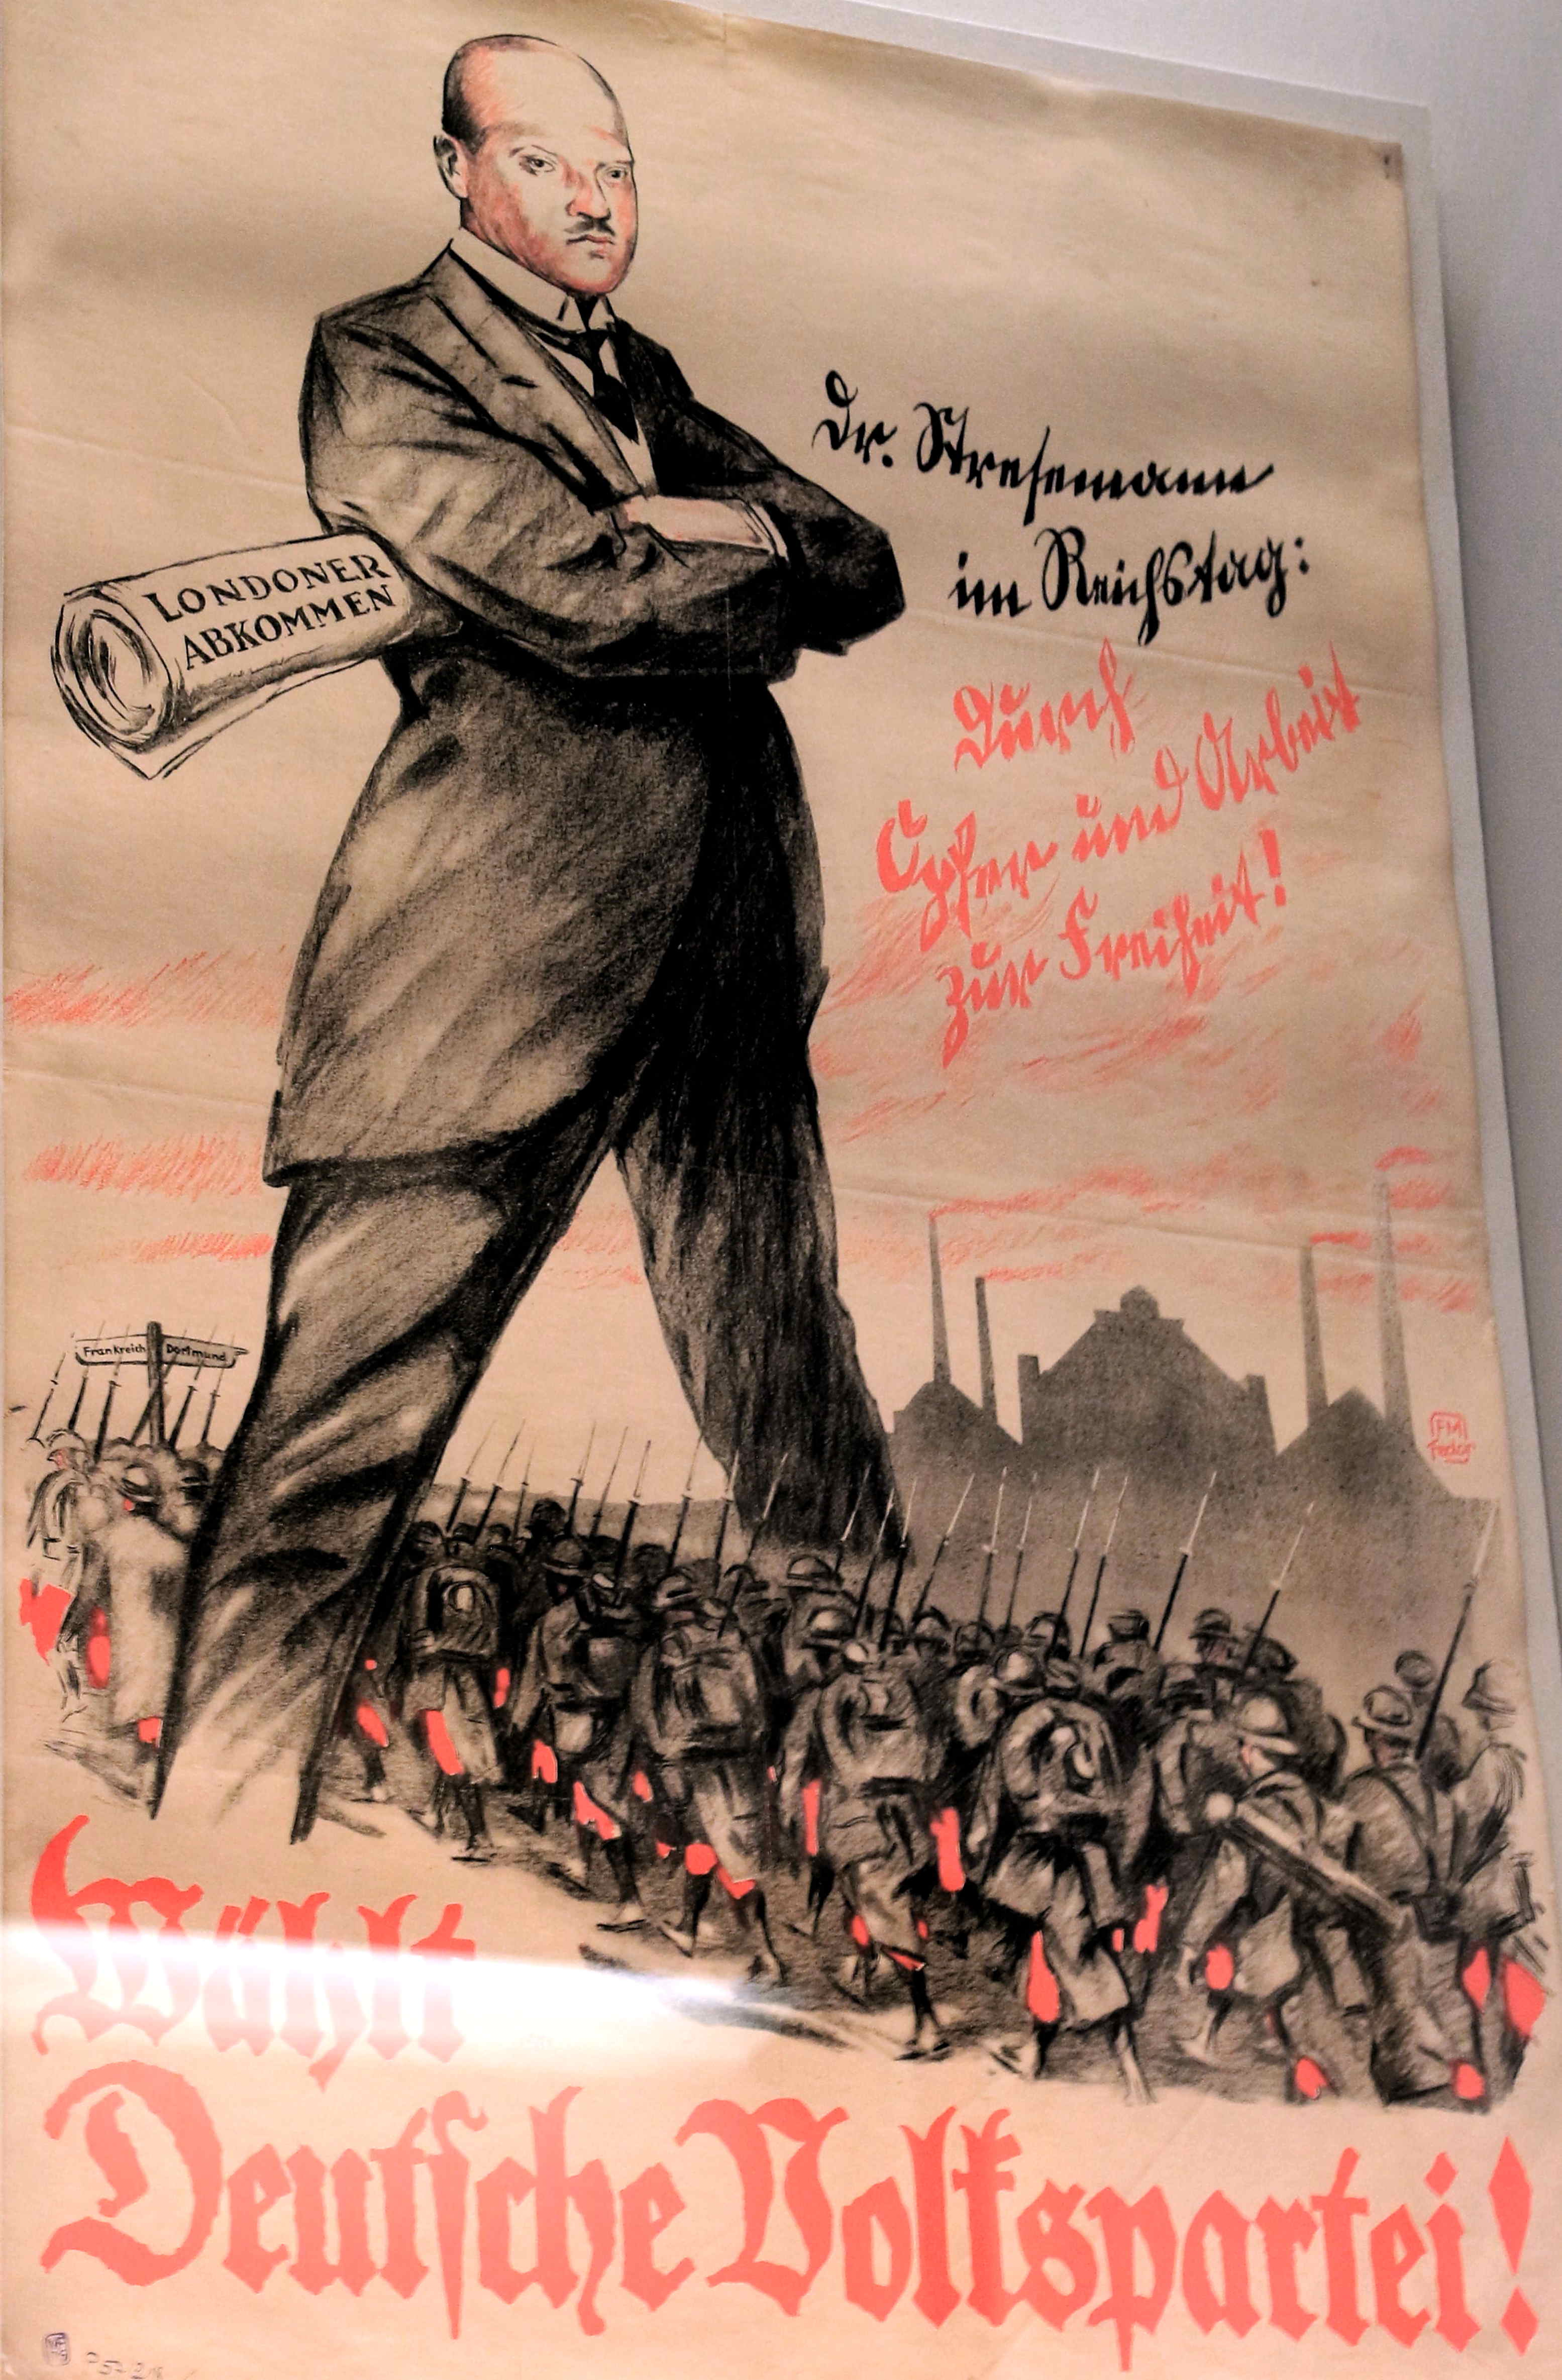 LONDONER
ABKOMMEN
Dr. Stresemann
im Reichstag:
Durch
Opfer und Arbeit
zur Freiheit!
Frankreich Dortmund
FM
Wählt
Deutsche Volkspartei!